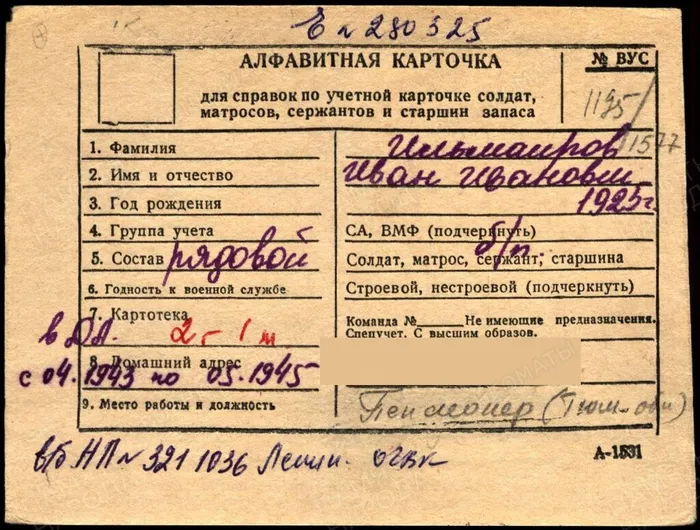 Е № 280325
АЛФАВИТНАЯ КАРТОЧКА
№ ВУС
для справок по учетной карточке солдат,
матросов, сержантов и старшин запаса
1195/
1577
1. Фамилия
Ильмаиров
2. Имя и отчество
Иван Иванович
3. Год рождения
1925 г.
4. Группа учета
СА, ВМФ (подчеркнуть)
б/п.
5. Состав рядовой
Солдат, матрос, сержант, старшина
6. Годность к военной службе
Строевой, нестроевой (подчеркнуть)
7. Картотека
Команда № Не имеющие предназначения.
Спецучет. С высшим образов.
в ДА. 2-1 м
8. Домашний адрес
с 04.1943 по 05.1945
9. Место работы и должность
Пенсионер (Тюм. обл)
в/б НП № 321 1036 Ленин. ОГВК
А-1531